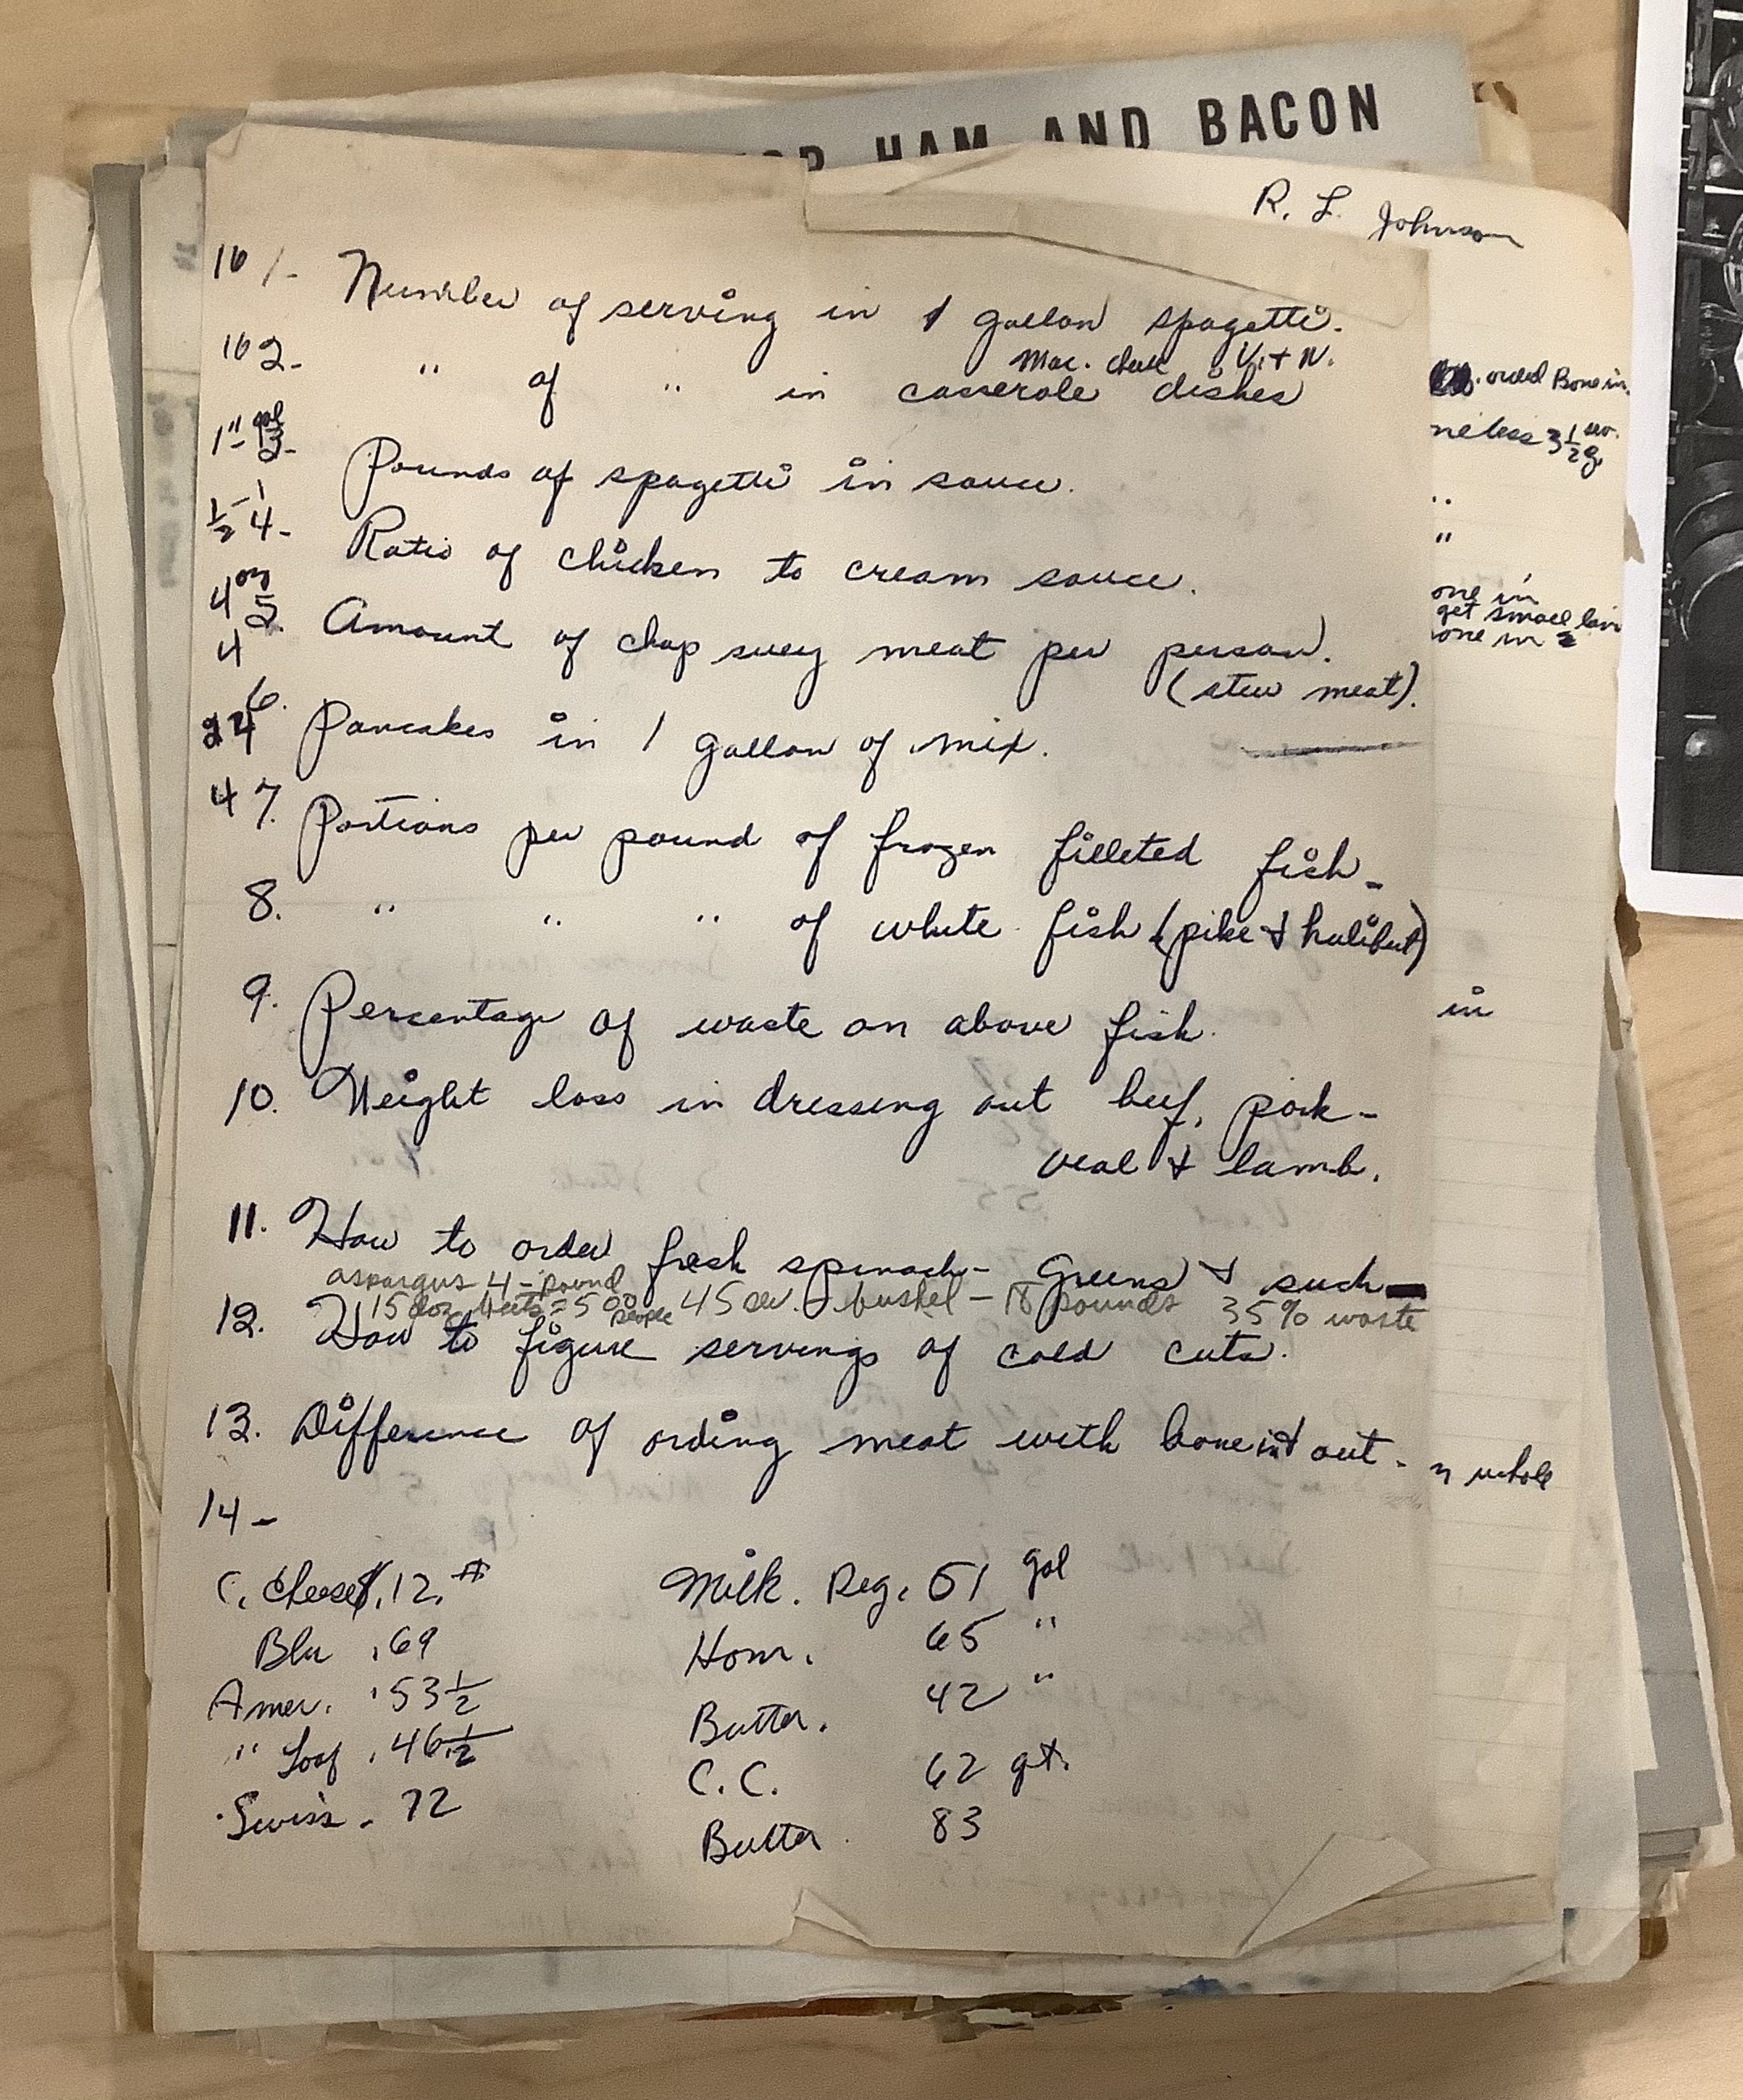 HAM AND BACON
R. L. Johnson
16 1- Number of serving in 1 gallon spagetti.
Mac. cheese V. + N.
16 2- " of " in casserole dishes
1" gal 3- Pounds of spagetti in sauce.
1/2-1 4- Ratio of chicken to cream sauce.
4 oz 5. Amount of chop suey meat per person.
4 (stew meat).
24 6. Pancakes in 1 gallon of mix.
4 7. Portions per pound of frozen filleted fish-
8. " " " of white fish (pike & halibut)
9. Percentage of waste on above fish.
10. Weight loss in dressing out beef, pork-
veal & lamb.
11. How to order fresh spinach- Greens & such
aspargus 4-pound
15 doz = 500 people 45 ser. bushel - 18 pounds 35% waste
12. How to figure servings of cold cuts.
13. Difference of ording meat with bone in & out-
14-
C. Cheese .12 #
Blu .69
Amer. .53 1/2
" Loaf .46 1/2
Swiss - 72
Milk. Reg. 51 gal
Hom. 65 "
Butter. 42 "
C.C. 62 qt.
Butter 83
Bone in.
neless 3 1/2 ser.
"
"
one in
get small
one in
in
whole